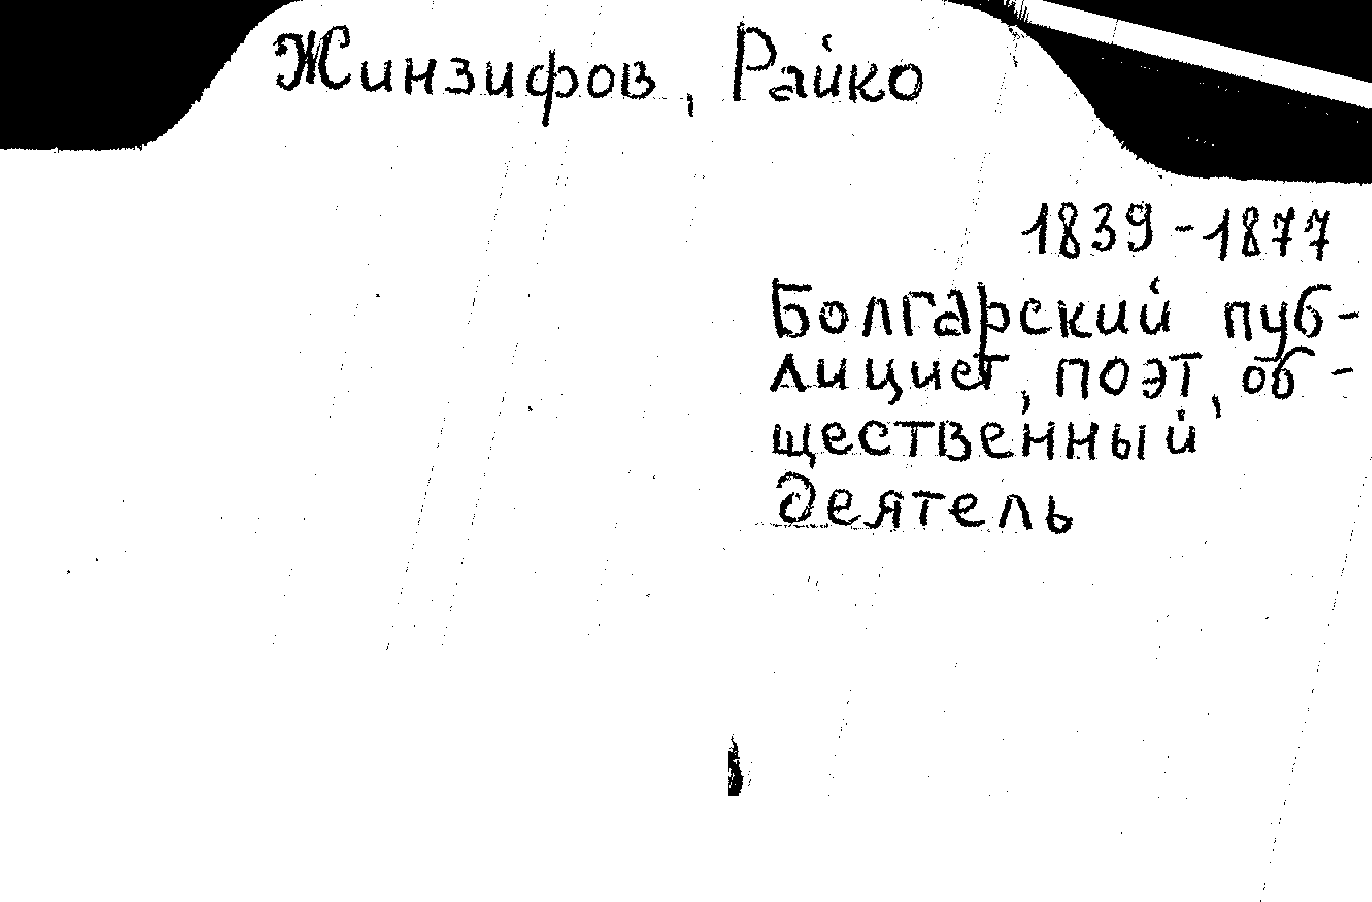 Жинзифов, Райко
1839-1877
Болгарский пуб-
лицист, поэт, об-
щественный
деятель